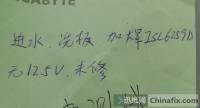 GABYTE
进水 洗板 加焊ISL6259D
无12.5V.未修
迅维网
Chinafix.com